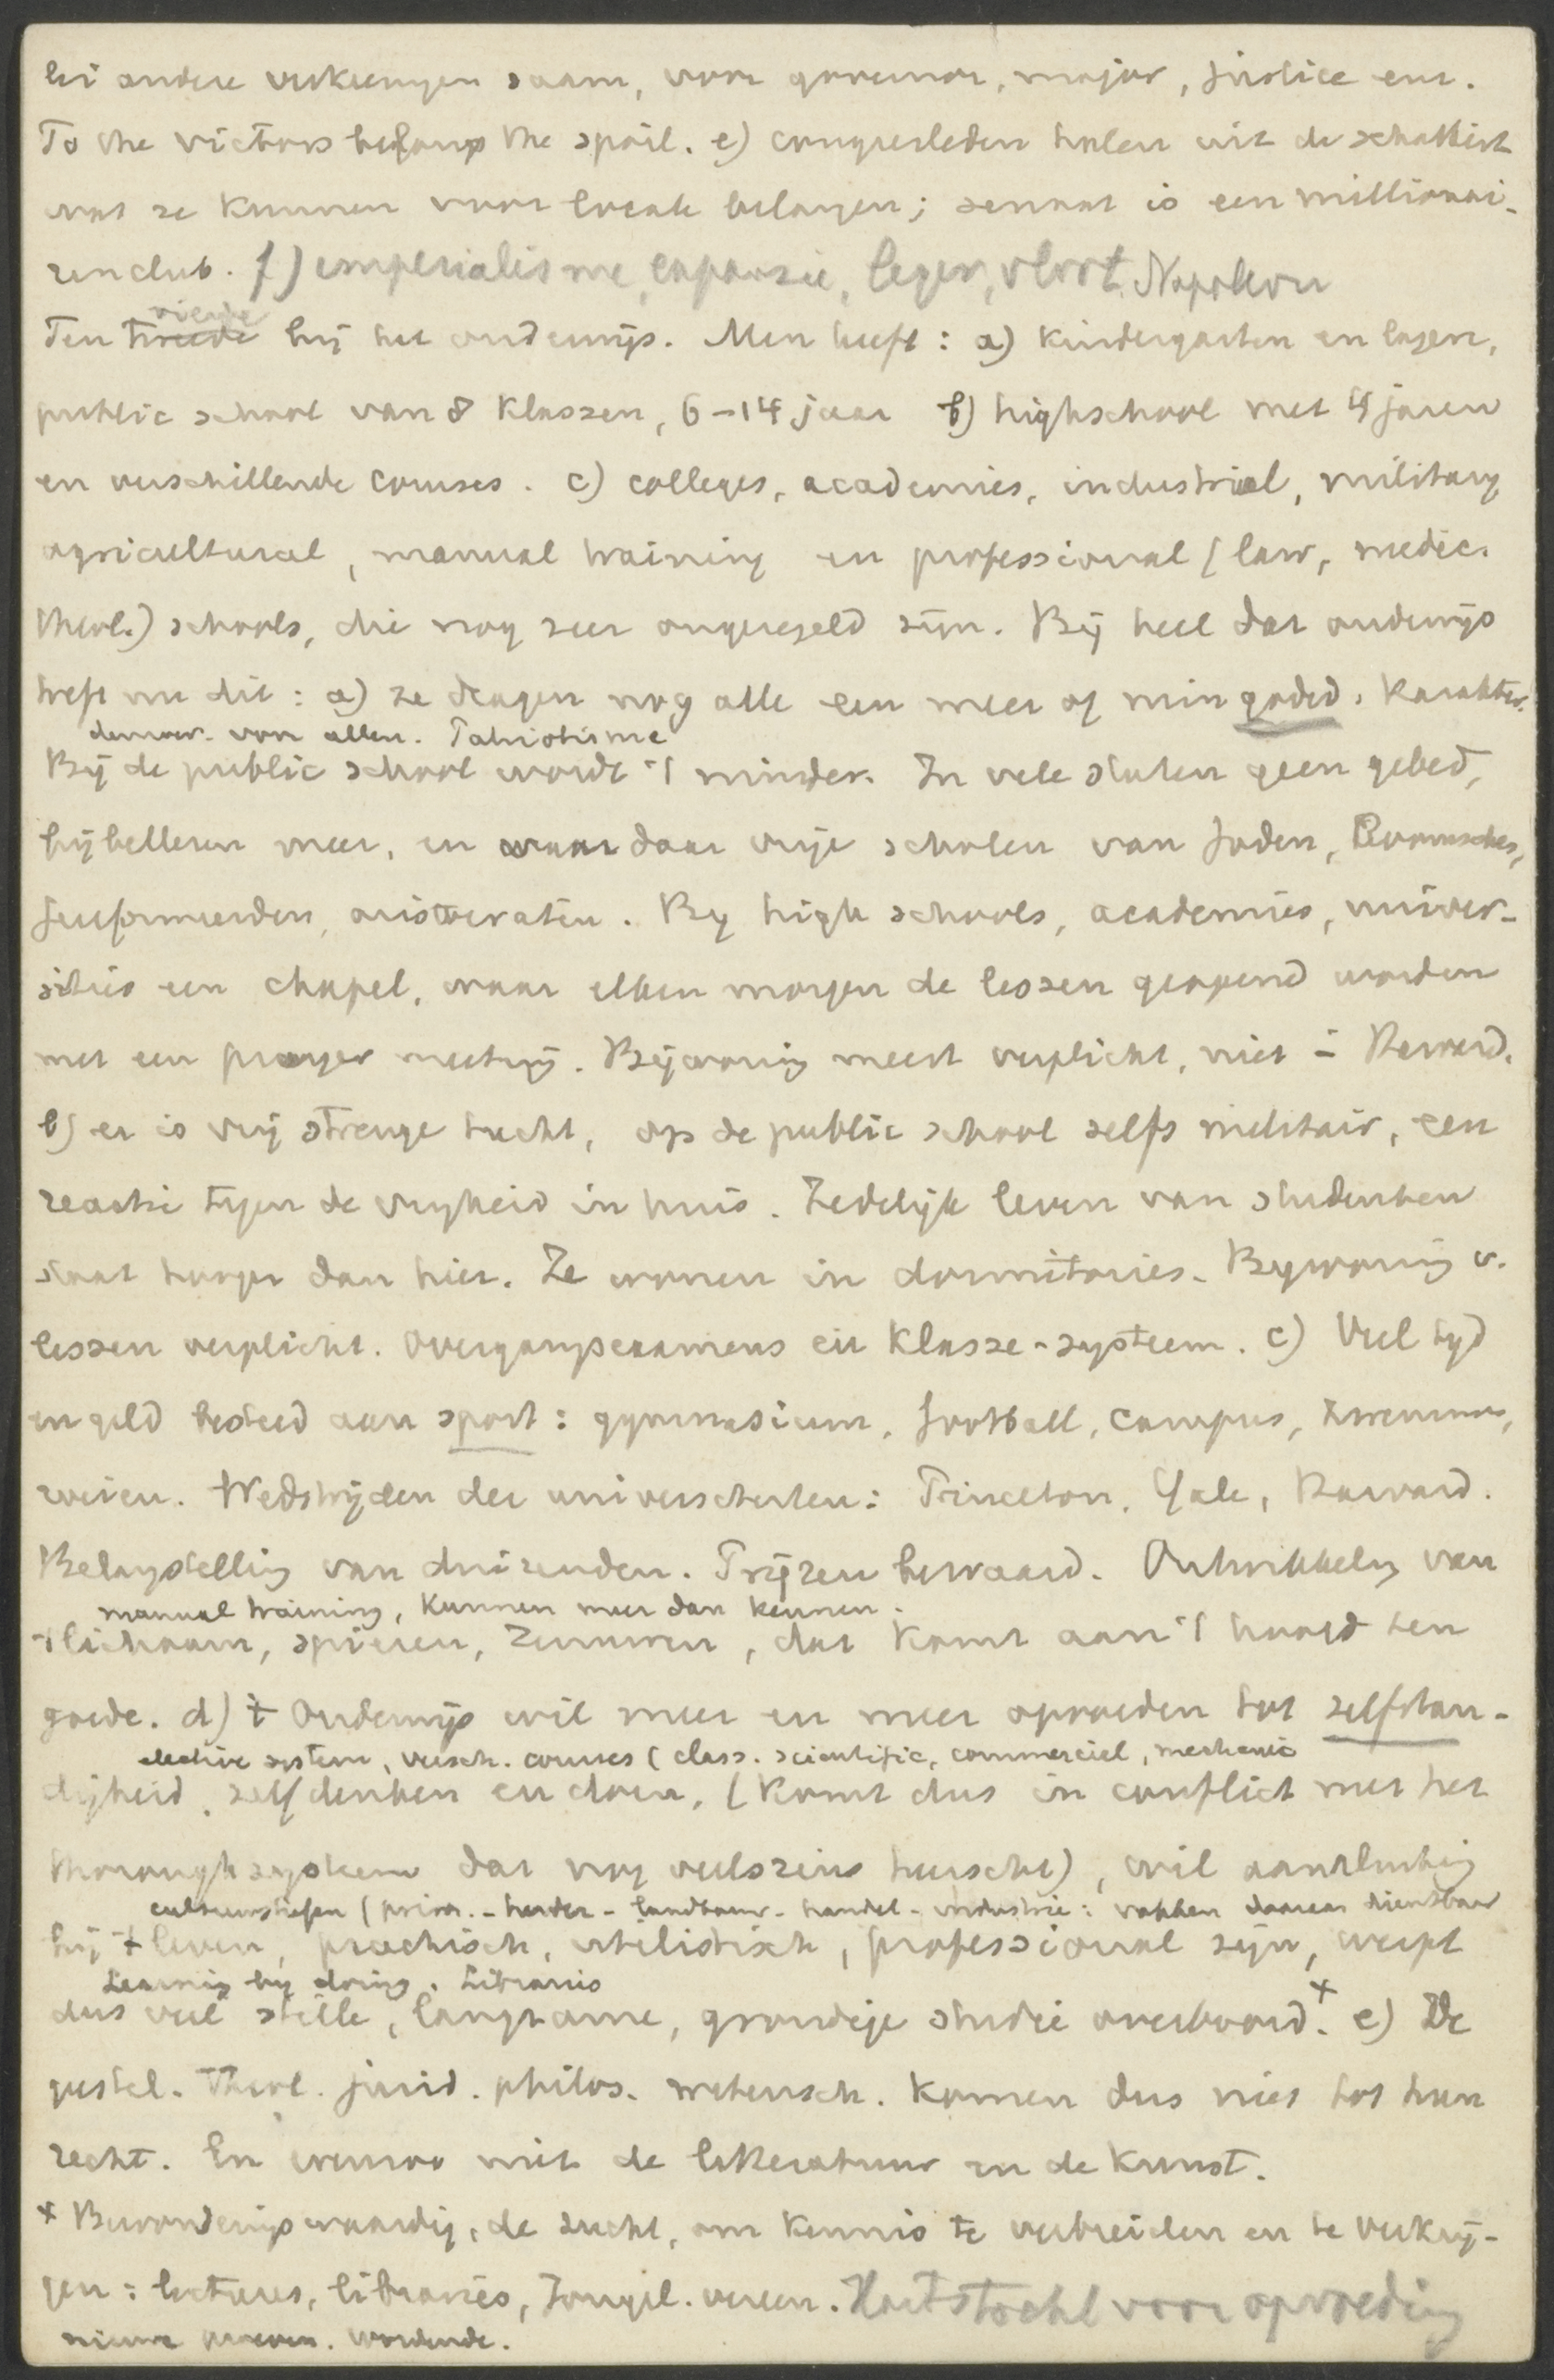 bij andere verkiezingen saam, voor governor, major, justice enz.
To the victors belongs the spoil. e) congresleden halen uit de schatkist
wat ze kunnen voor locale belangen; senaat is een millionai-
renclub. f) imperialisme, expansie, leger, vloot, Napoleon
vierde
Ten tweede bij het onderwijs. Men heeft: a) kindergarten en lagere,
public school van 8 klassen, 6-14 jaar b) highschool met 4 jaren
en verschillende courses. c) colleges, academies, industrial, military
agricultural, manual training en professional (law, medic.
theol.) schools, die nog zeer ongeregeld zijn. Bij heel dat onderwijs
treft nu dit: a) ze dragen nog alle een meer of min godsd. karakter.
democr. van allen. Patriotisme
Bij de public school wordt 't minder. In vele staten geen gebed,
bijbellezen meer, en daar vrije scholen van Joden, Roomschen,
Gereformeerden, aristocraten. By high schools, academies, univer-
sities een chapel, waar elken morgen de lessen geopend worden
met een prayer meeting. Bijwoning meest verplicht, niet in Harvard.
b) er is vrij strenge tucht, op de public school zelfs militair, een
reactie tegen de vryheid in huis. Zedelijk leven van studenten
staat hooger dan hier. Ze wonen in dormitories. Bywoning v.
lessen verplicht. Overgangsexamens en klasse-systeem. c) Veel tyd
en geld besteed aan sport: gymnasium, football, campus, zwemmen,
roeien. Wedstrijden der universiteiten: Princeton, Yale, Harvard.
Belangstelling van duizenden. Prijzen bewaard. Ontwikkeling van
manual training, kunnen meer dan kennen.
't lichaam, spieren, zenuwen, dat komt aan 't hoofd ten
goede. d) 't Onderwijs wil meer en meer opvoeden tot zelfstan-
elective system, versch. courses (class. scientific, commerciel, mechanic
digheid, zelf denken en doen, (komt dus in conflict met het
thorough systeem dat nog veelszins heerscht), wil aansluiting
cultuurstufen (prim. - herder - landbouw - handel - industrie: vakken daaraan dienstbaar
bij 't leven, practisch, utilistisch, professional zijn, werpt
Learning by doing. Libraries
dus veel stille, langzame, grondige studie overboord.x e) De
geestel. theol. jurid. philos. wetensch. komen dus niet tot hun
recht. En evenzoo met de litteratuur en de kunst.
x Bewonderingswaardig, de zucht, om kennis te verbreiden en te verkrij-
gen: lectures, libraries, Jongel. vereen. Hartstocht voor opvoeding
nieuwe wordende.